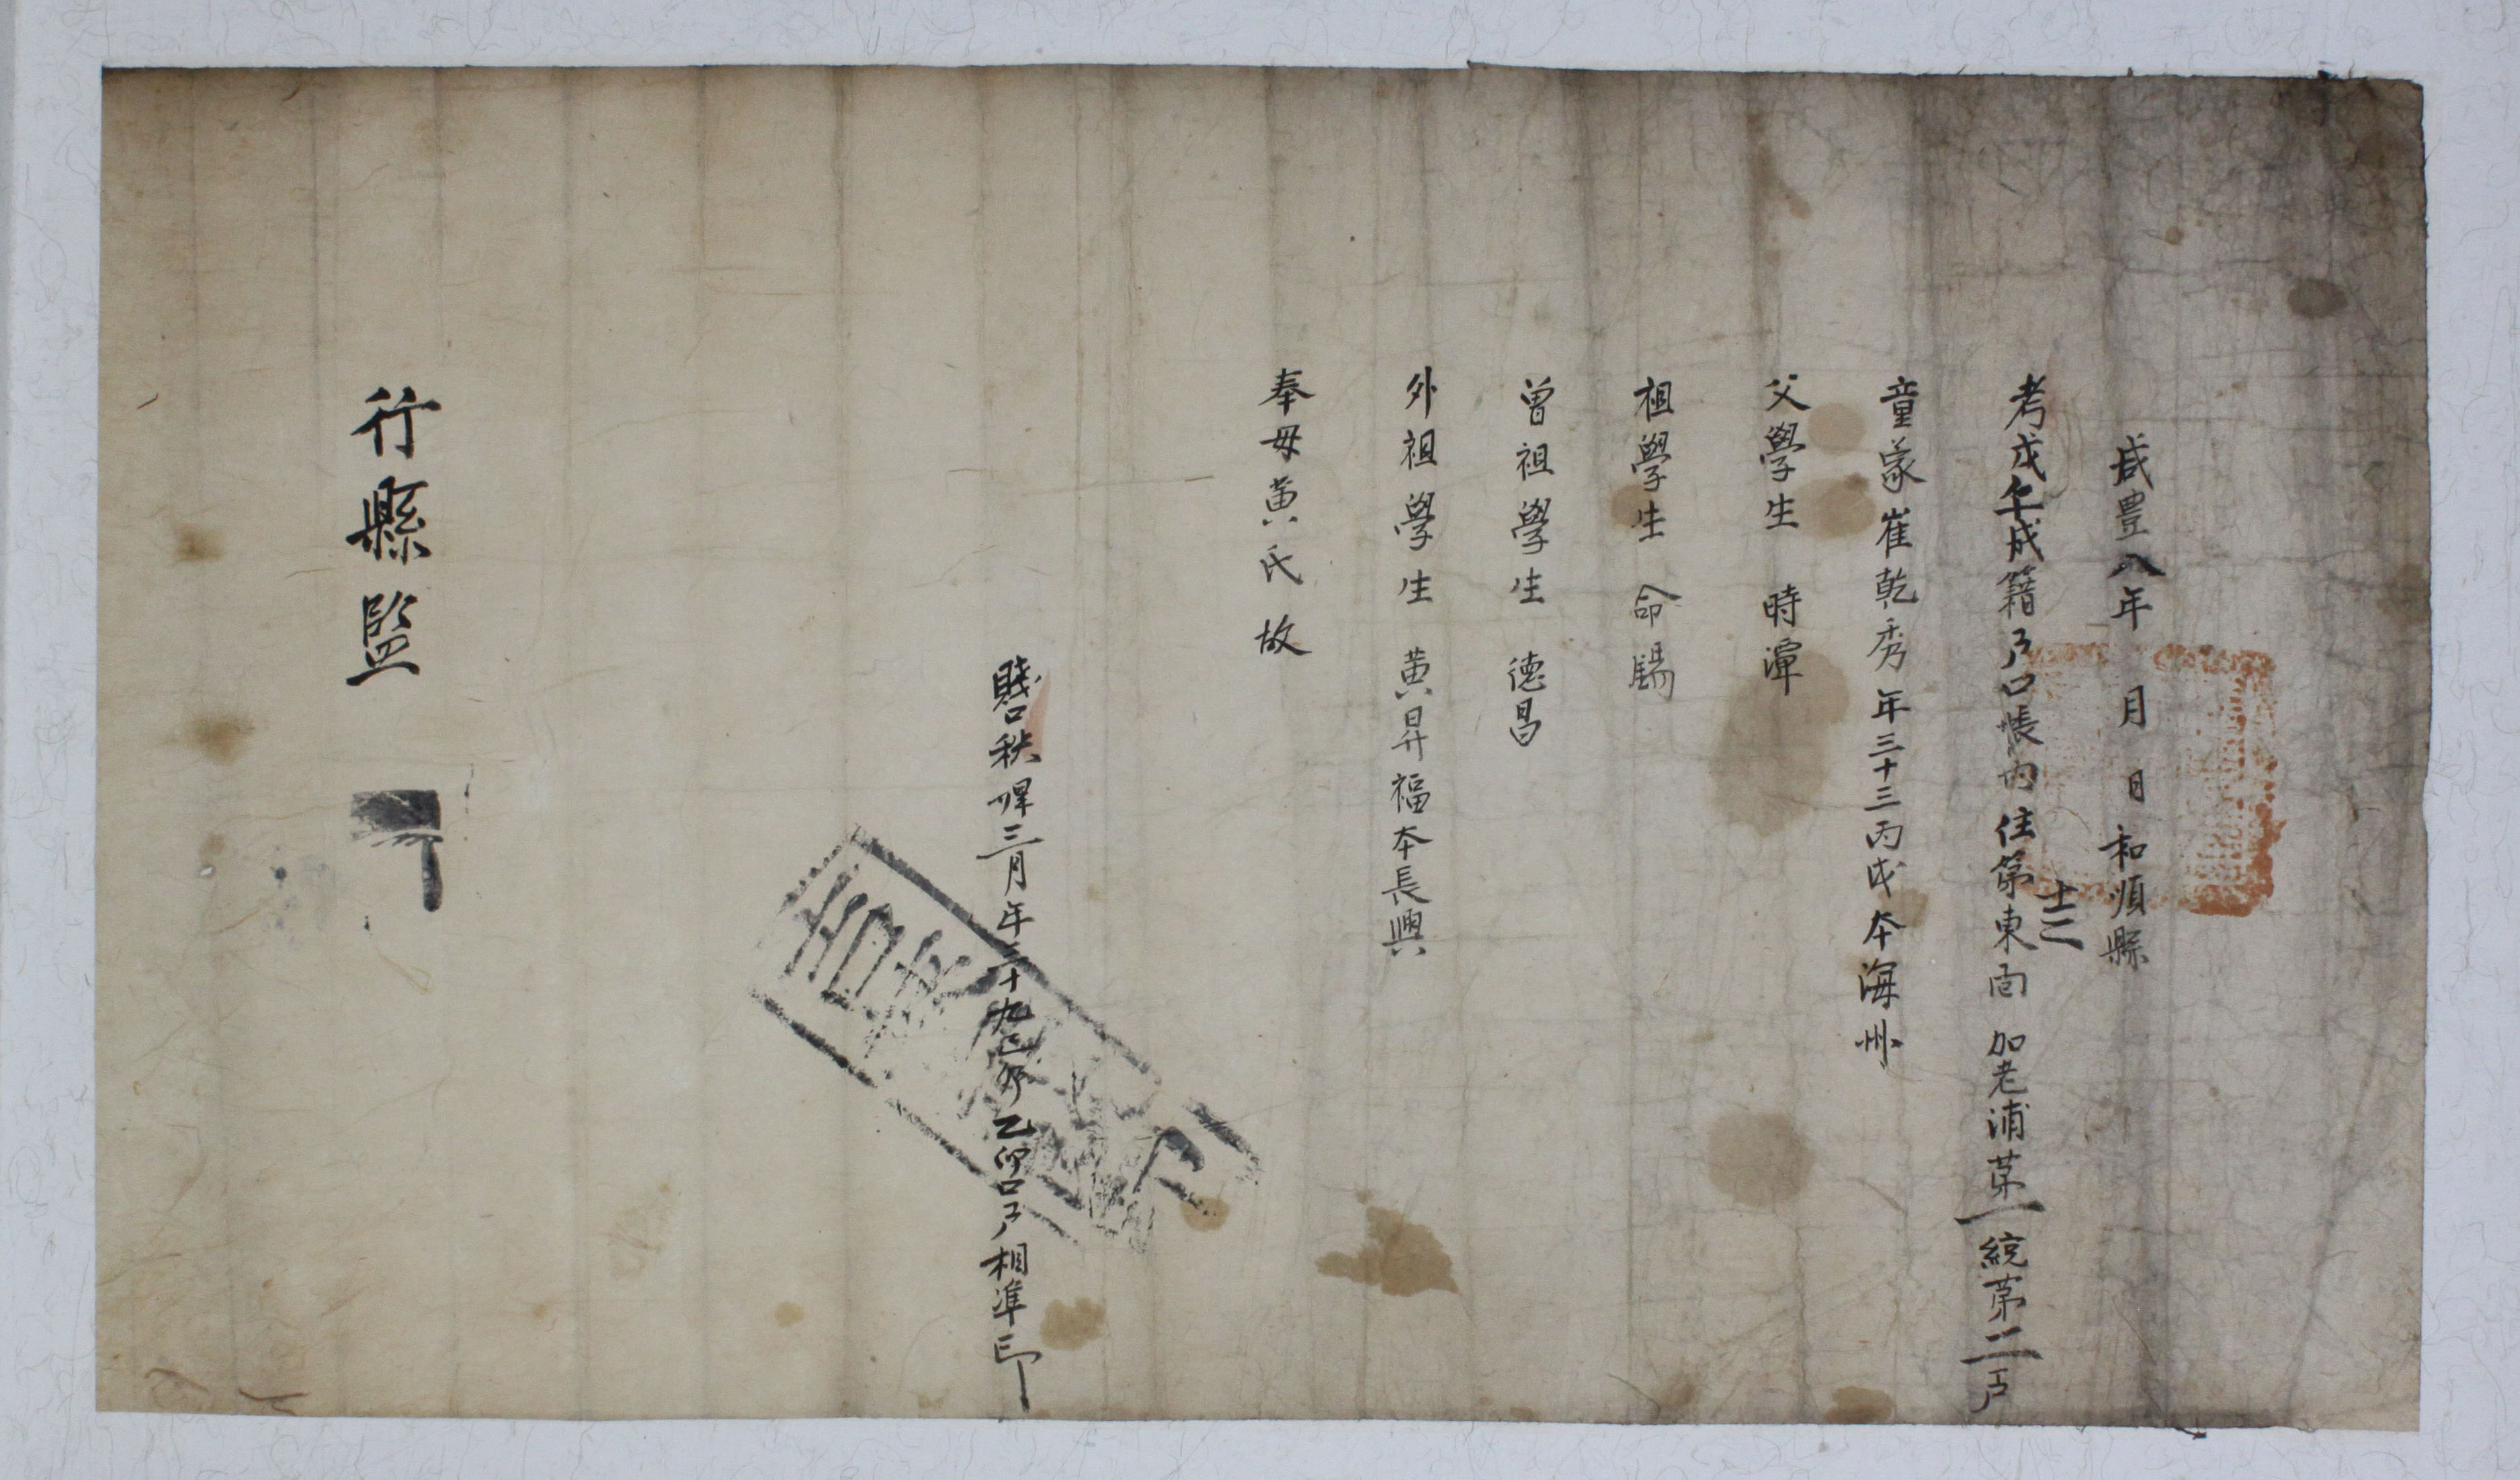 咸豊八年 月 日和順縣
考戊午成籍戶口帳內住第東面 加老浦苐一統苐二戶
十二
童蒙崔乾秀年三十三丙戌本海州
父學生 時潭
祖學生 命鍚
曾祖學生 德昌
外祖學生 黃昇福本長興
奉母黃氏故
賤口秩婢三月年三十九 乙卯戶口相準印
行縣監